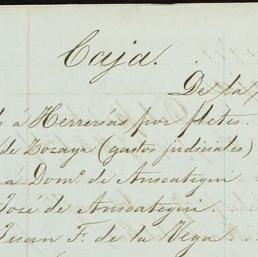 Caja.
De la
á Herrerías por fletes.
de Zozaya (gastos judiciales)
a Dom.º de Ansoategui
José de Ansoategui
Juan F. de la Vega